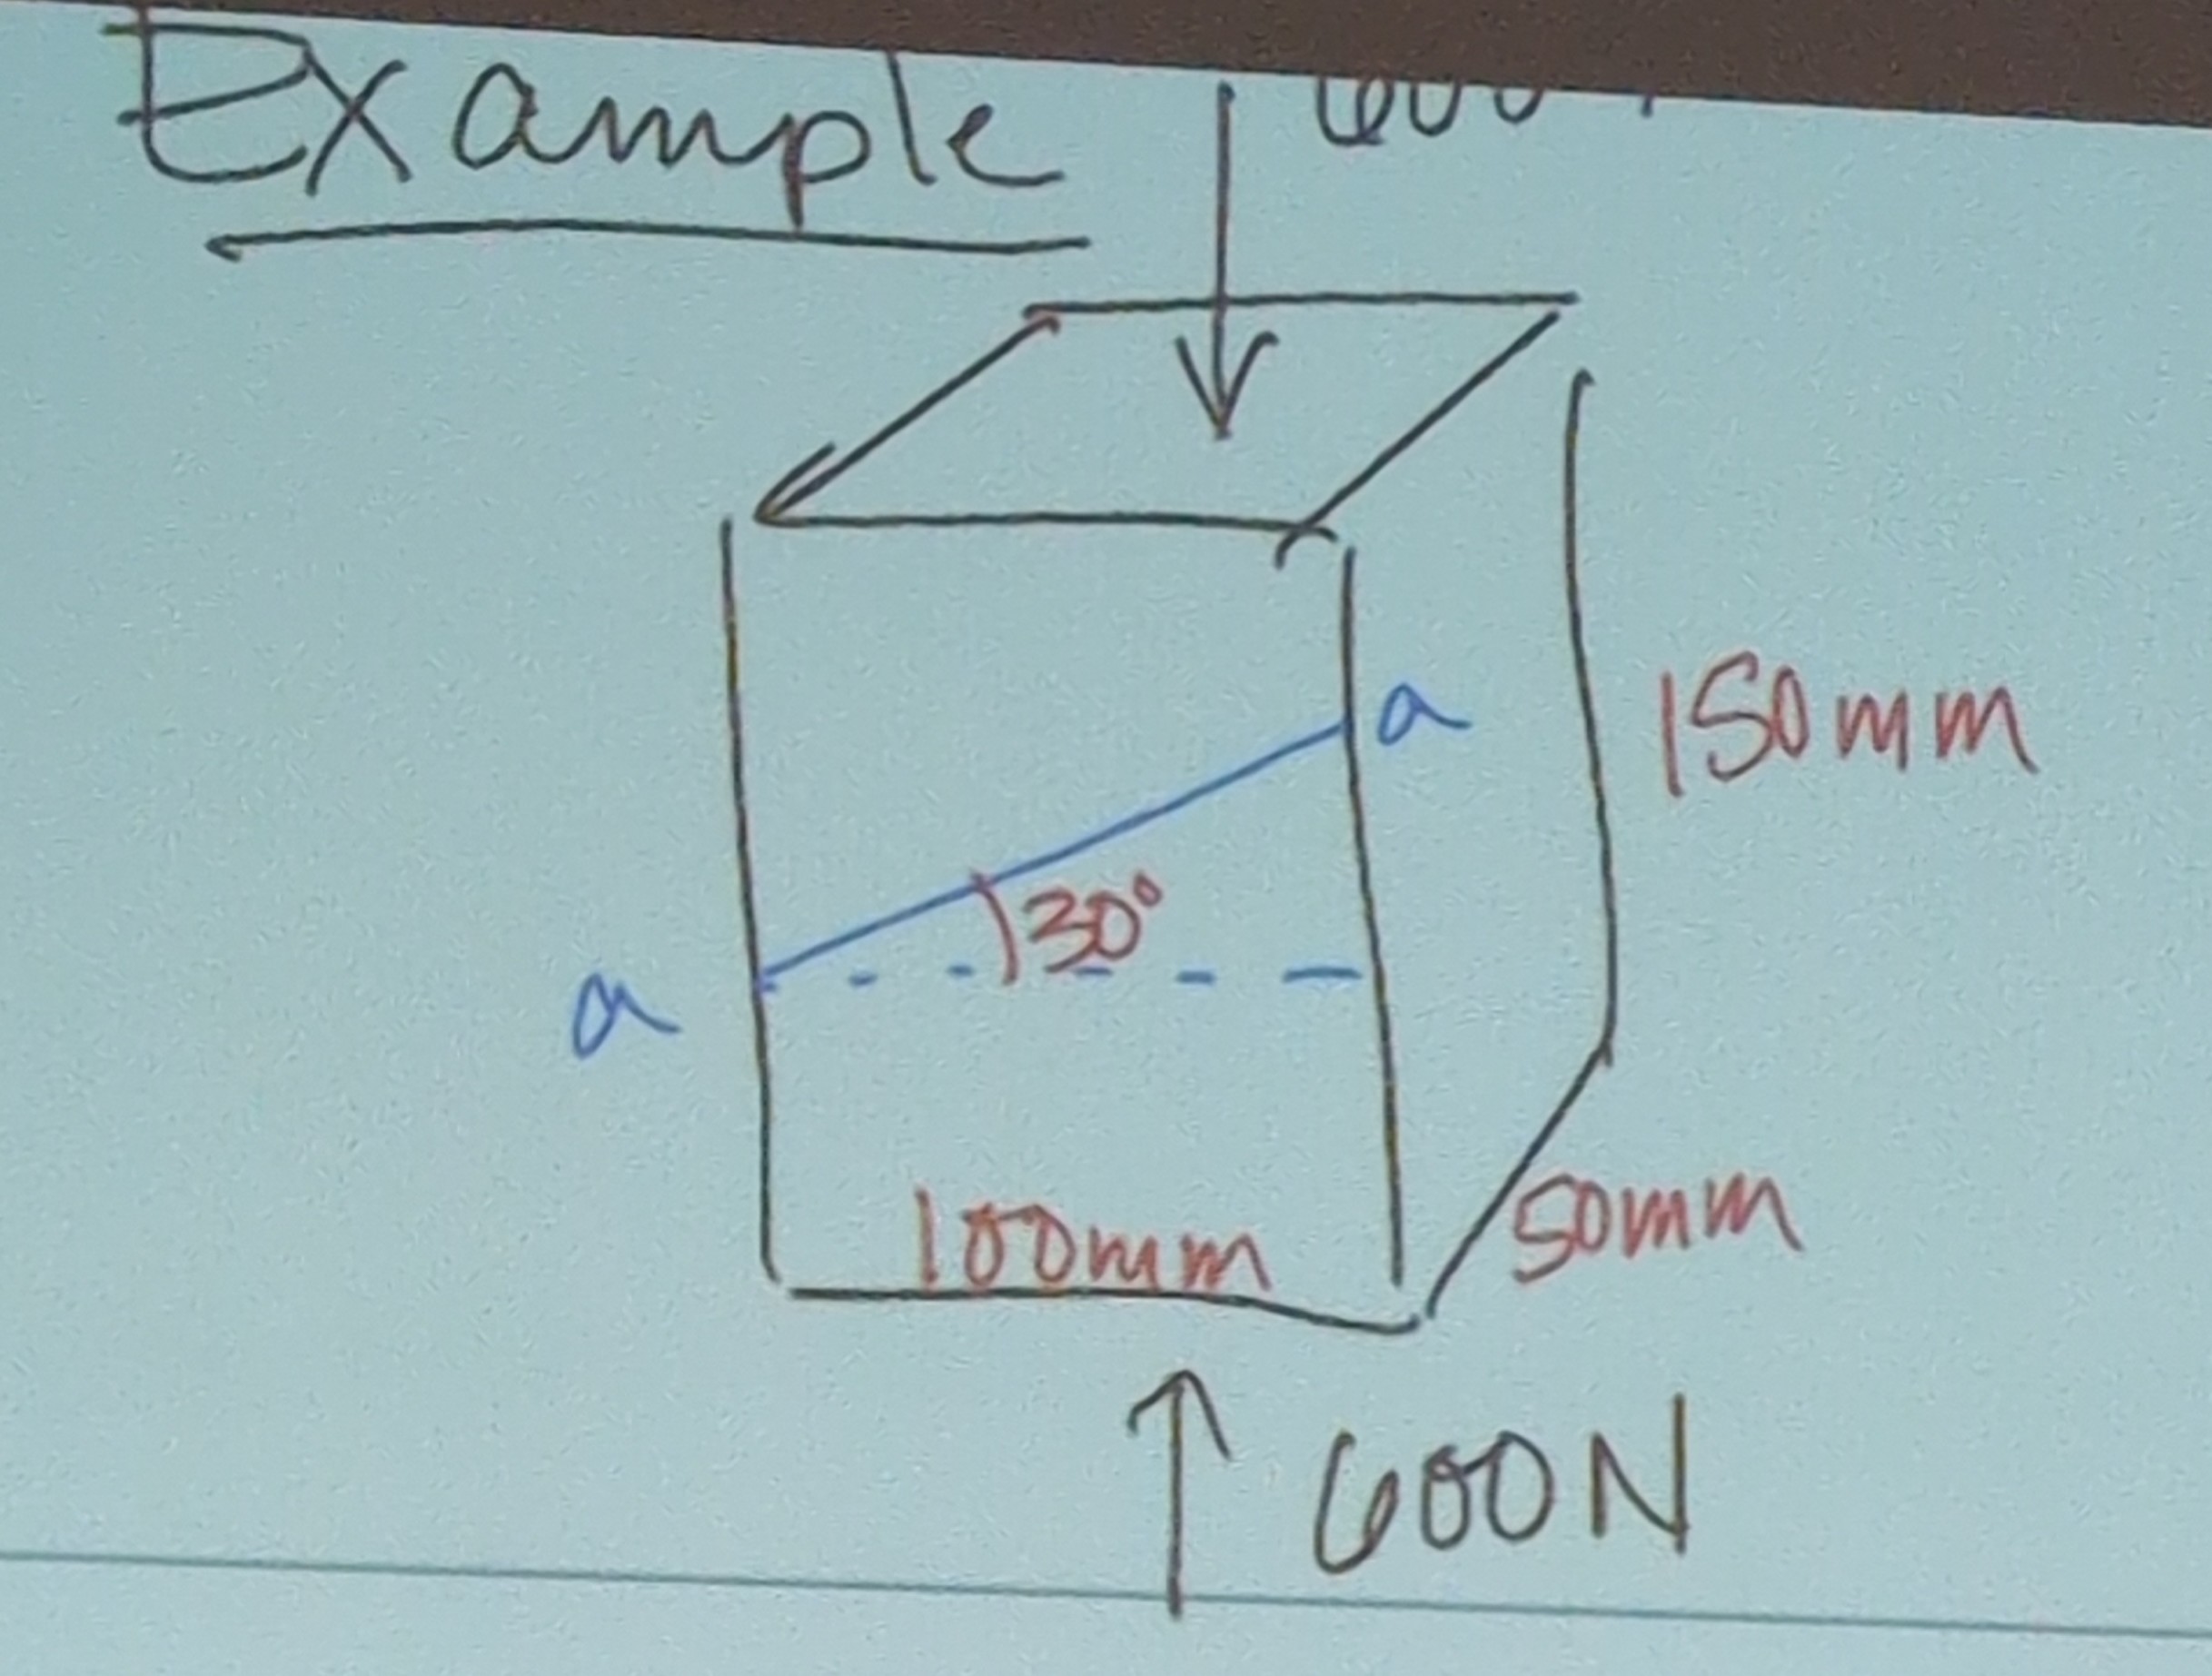 Example
a
150mm
30°
a
100mm
50mm
600N